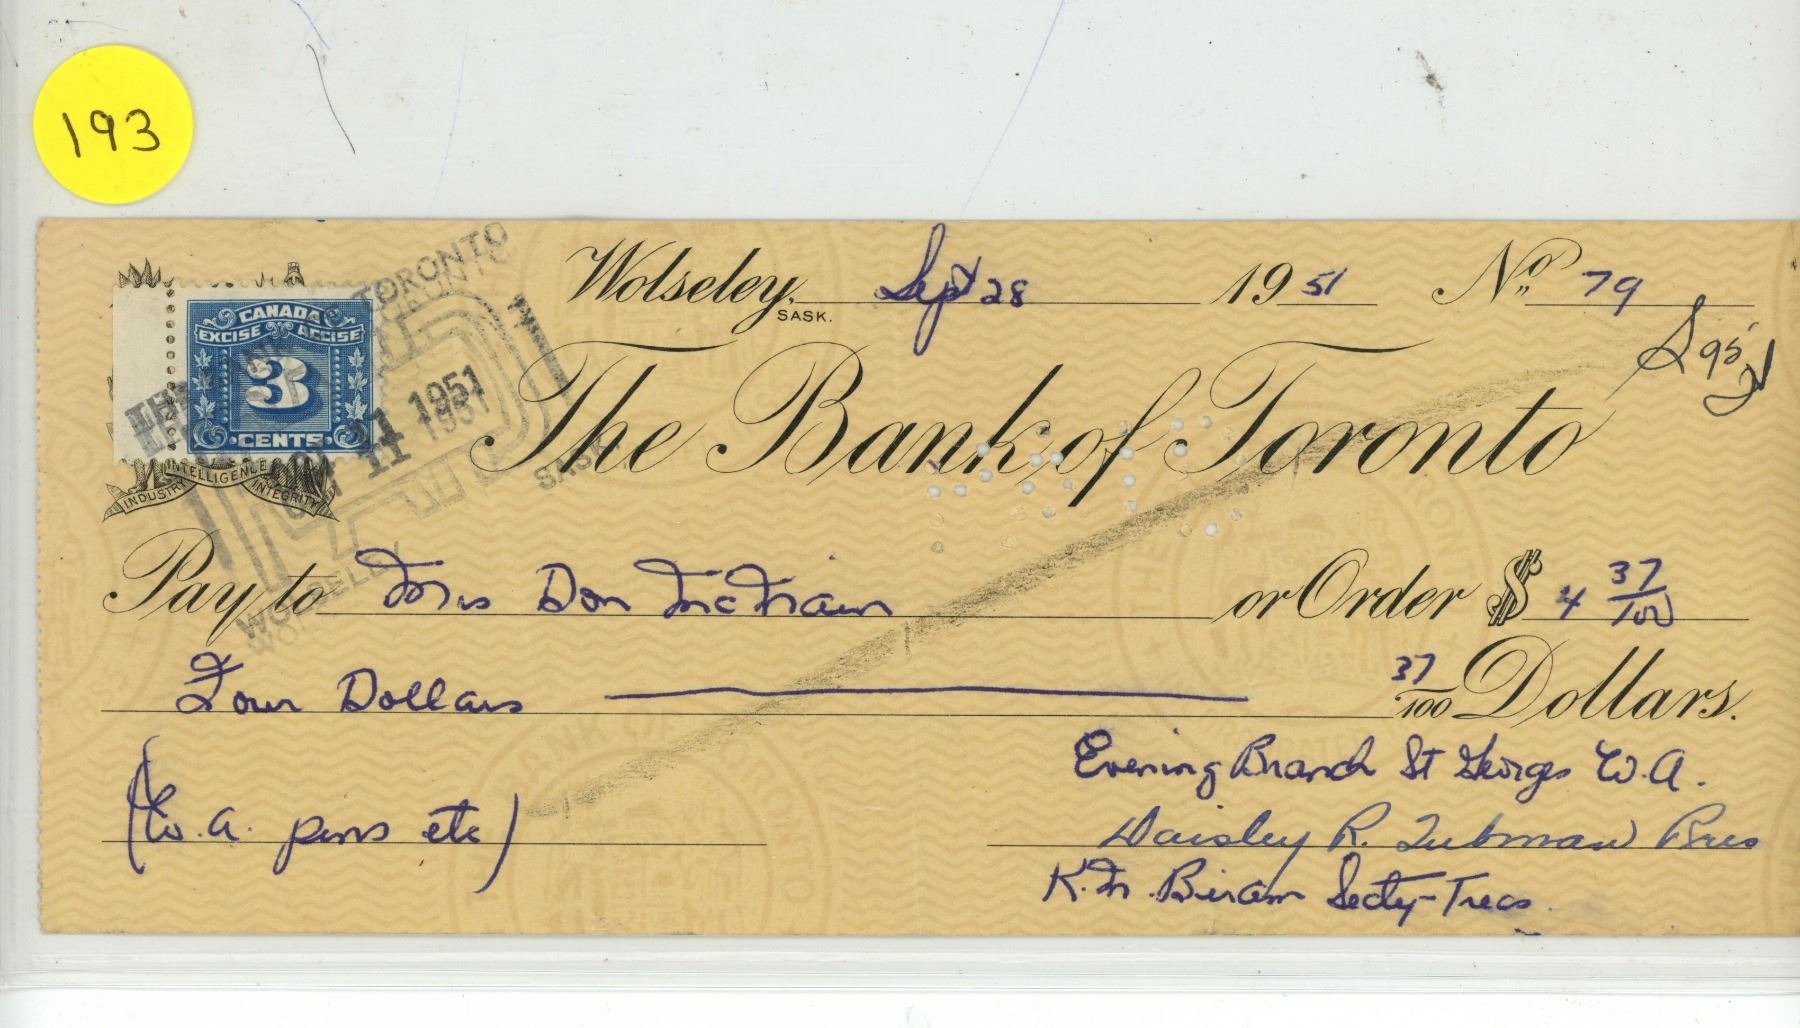 193
Wolseley, SASK. Sept 28 1951 No. 79
CANADA
EXCISE ACCISE
3
CENTS
TORONTO
1951
SASK.
INDUSTRY INTELLIGENCE INTEGRITY
The Bank of Toronto
Pay to Mrs Don McNain or Order $ 4 37/100
Four Dollars 37/100 Dollars.
Evening Branch St Georges W.A.
(W.A. pins etc)
Daisley R. Tubman Pres
K.M. Biram Secty-Treas.